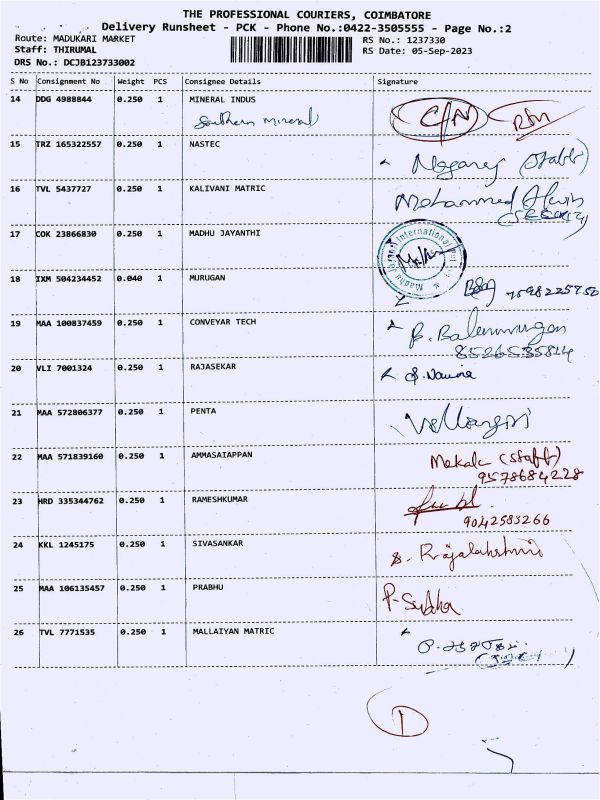 THE PROFESSIONAL COURIERS, COIMBATORE
Delivery Runsheet - PCK - Phone No.:0422-3505555 - Page No.:2
Route: MADUKARI MARKET RS No.: 1237330
Staff: THIRUMAL RS Date: 05-Sep-2023
DRS No.: DCJB123733002
S No Consignment No Weight PCS Consignee Details Signature
14 DDG 4988844 0.250 1 MINERAL INDUS
Southern Mineral C/N
15 TRZ 165322557 0.250 1 NASTEC
(Staff)
16 TVL 5437727 0.250 1 KALIVANI MATRIC
Mohammed
17 COK 23866830 0.250 1 MADHU JAYANTHI
Madhu Jayanthi International Pvt
18 IXM 504234452 0.040 1 MURUGAN
7598225950
19 MAA 100837459 0.250 1 CONVEYAR TECH
B. Balamurugan
8526535814
20 VLI 7001324 0.250 1 RAJASEKAR
21 MAA 572806377 0.250 1 PENTA
Vellangiri
22 MAA 571839160 0.250 1 AMMASAIAPPAN
Mekala (Staff)
9578684228
23 HRD 335344762 0.250 1 RAMESHKUMAR
9042583266
24 KKL 1245175 0.250 1 SIVASANKAR
S. Rajalakshmi
25 MAA 106135457 0.250 1 PRABHU
P-Subha
26 TVL 7771535 0.250 1 MALLAIYAN MATRIC
1